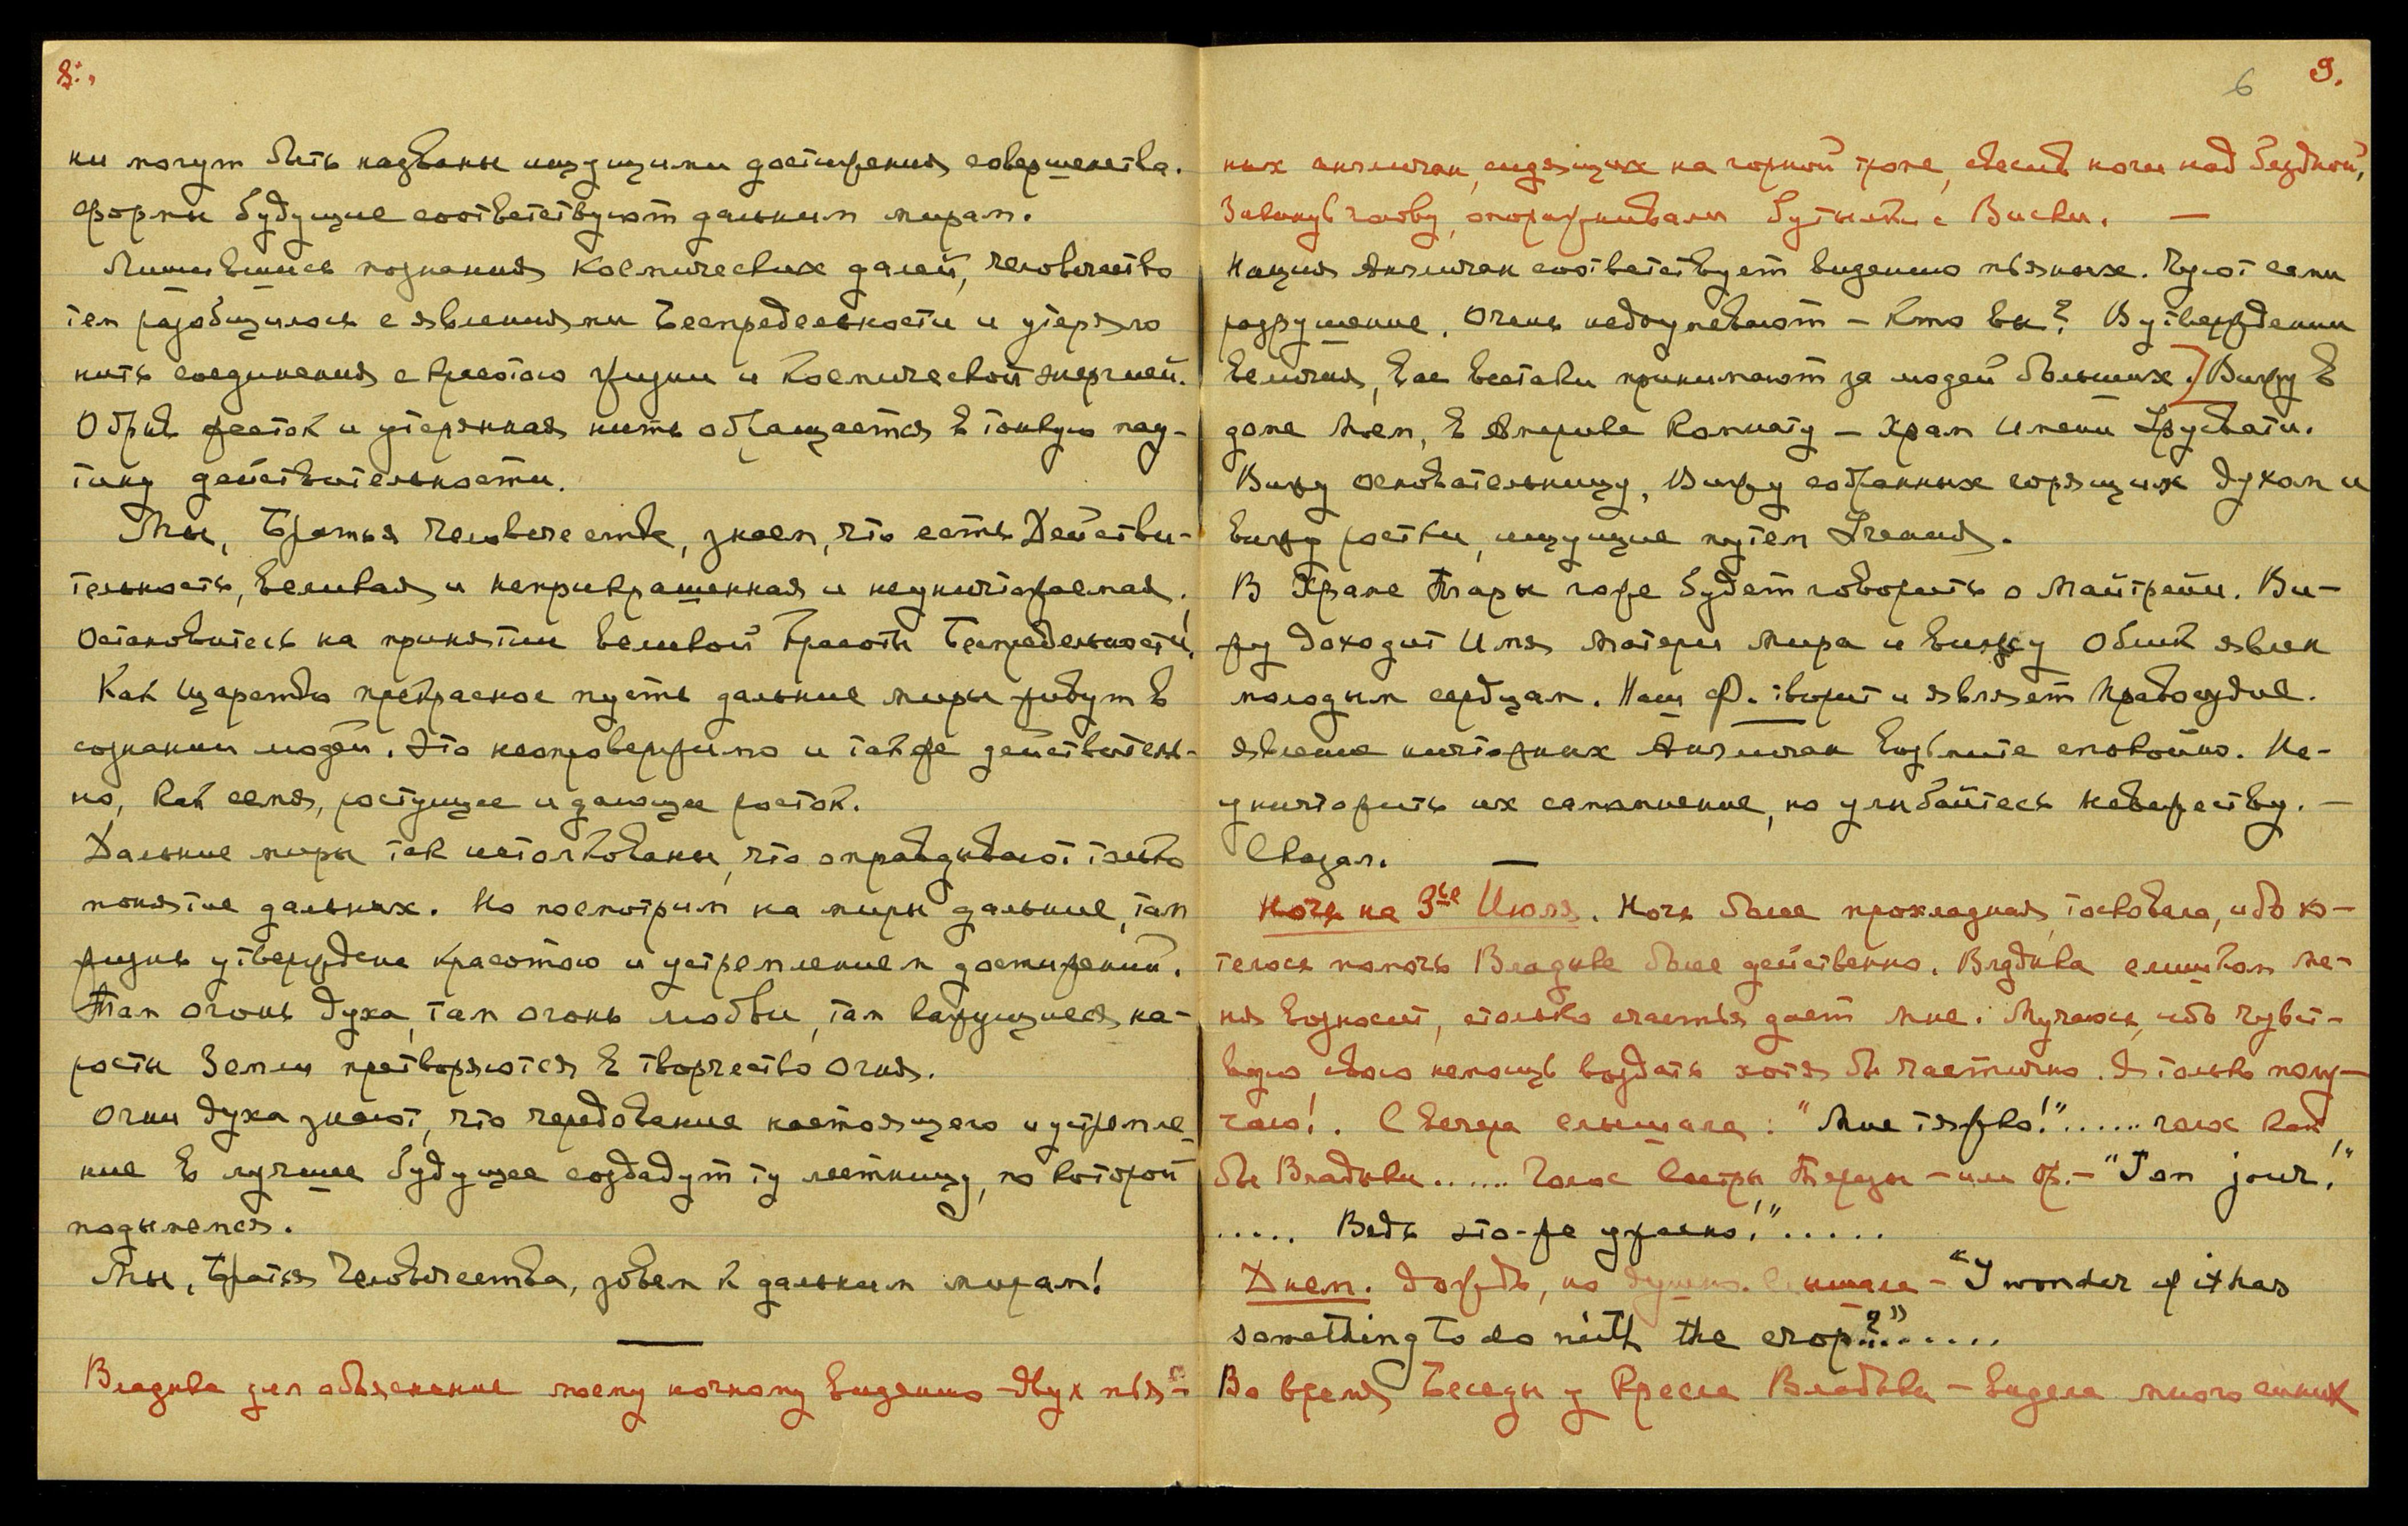 8.
ни могут быть названы ищущими достижения совершенства.
Формы будущие соответствуют дальним мирам.
Лишившись познания Космических далей, человечество
тем разобщилось с явлениями Беспредельности и утеряло
нить соединения с красотою жизни и Космической энергией.
Обрыв жесток и утерянная нить обращается в тонкую пау-
тину действительности.
Мы, Братья Человечества, знаем, что есть Действи-
тельность, великая и неприкрашенная и неуничтожаемая.
Остановитесь на принятии великой Красоты Беспредельности!
Как Царство прекрасное пусть дальние миры живут в
сознании людей. Это неопровержимо и также действитель-
но, как семя, ростущее и дающее росток.
Дальние миры так истолкованы, что оправдывают только
понятие дальних. Но посмотрим на миры дальние, там
жизнь утверждена красотою и устремлением достижений.
Там огонь духа, там огонь любви, там кажущиеся на-
росты Земли претворяются в творчество огня.
Огни духа знают, что чередование настоящего и устремле-
ние в лучшее будущее создадут ту лестницу, по которой
подымемся.
Мы, Братья Человечества, зовем к дальним мирам!
Владыка дал объяснение моему ночному видению двух пья-
6 9.
ных англичан, сидящих на горной тропе, свесив ноги над бездной,
Закинув голову, опоражнивали бутылки с Виски. —
Нация Англичан соответствует видению пьяных. Чуют сами
разрушение. Очень недоумевают — Кто вы? В утверждении
величия, вас всетаки принимают за людей больших. Вижу в
доме Моем, в Америке Комнату — Храм Имени Урусвати.
Вижу основательницу, Вижу собранных горящих духом и
вижу ростки, ищущие путем Учения.
В Храме Тары гора будет говорить о Майтрейи. Ви-
жу доходит Имя Матери Мира и вижу Облик явлен
молодым сердцам. Наш Ф. творит и являет Правосудие.
явление ничтожных Англичан возьмите спокойно. Не-
уничтожить их самомнение, но улыбайтесь невежеству. —
Сказал. —
Ночь на 3ье Июля. Ночь более прохладная, тосковала, ибо хо-
телось помочь Владыке более действенно. Владыка слишком ме-
ня возносит, столько счастья дает мне. Мучаюсь, ибо чувст-
вую свою немощь воздать хотя бы частично. Я только полу-
чаю!. С вечера слышала: "Мне тяжко!"...... голос как
бы Владыки...... Голос Сестры Терезы — или Ф. — "Ton jour!"
..... Ведь это-же ужасно!".....
Днем. Дождь, но душно. Слышала — "I wonder if it has
something to do with the crop?"......
Во время Беседы у Кресла Владыки — видела много синих